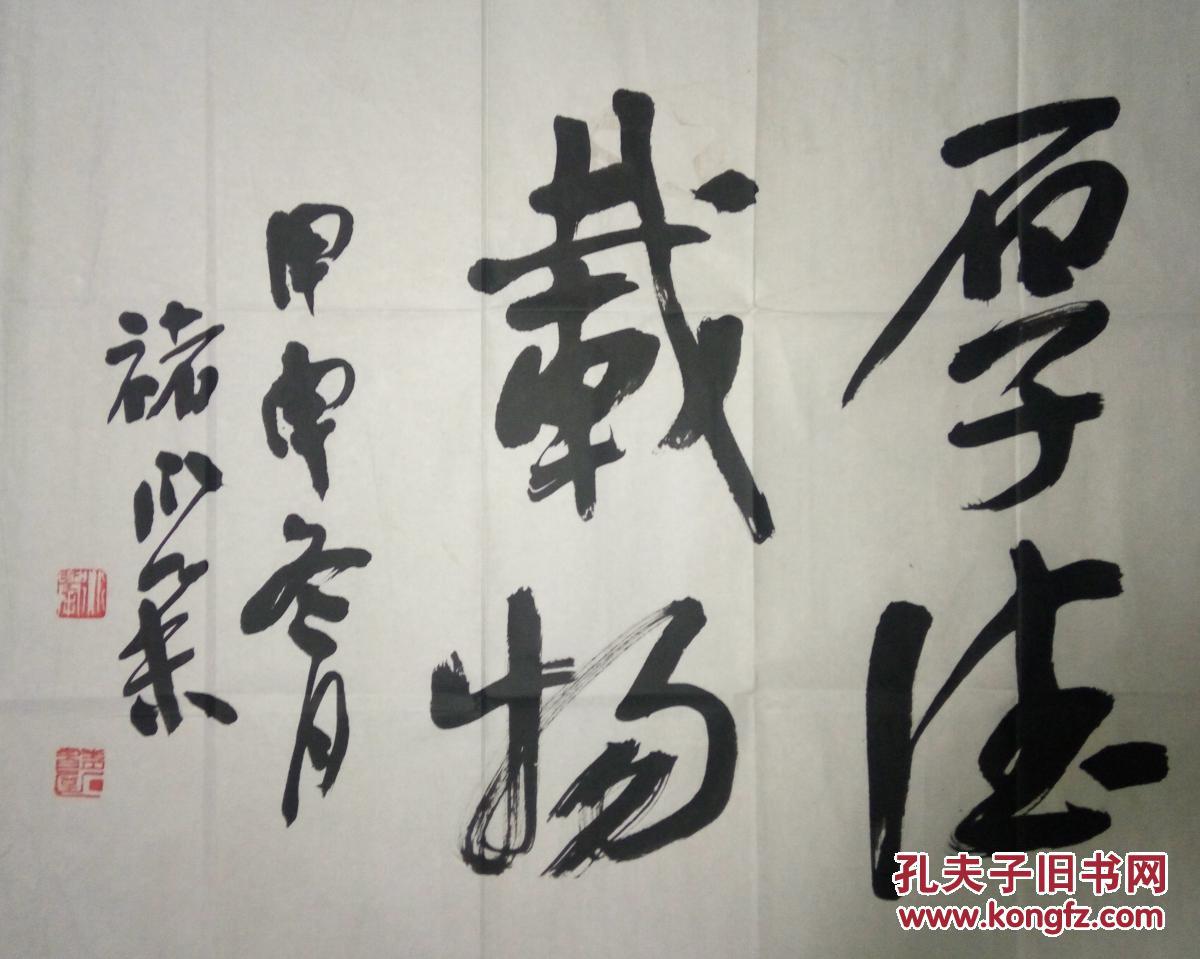 厚德
载物
甲申冬月
褚
孔夫子旧书网
www.kongfz.com